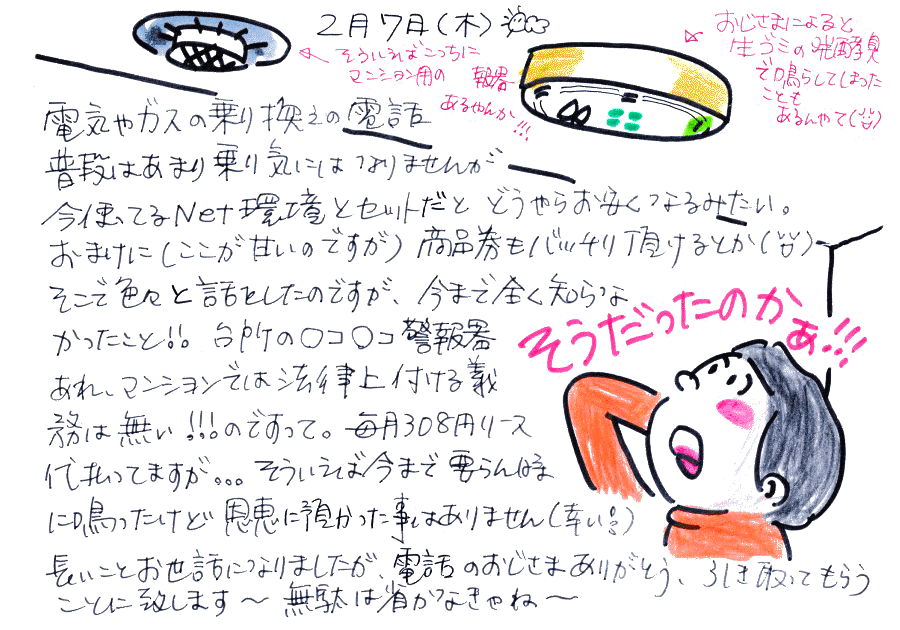 2月7日(木)
そういえばこっちに
マンション用の 報器
あるやんか!!!
おじさまによると
生ゴミの発酵臭
で鳴らしてしまった
ことも
あるんやて
電気やガスの乗り換えの電話
普段はあまり乗り気にはなりませんが
今使ってるNet環境とセットだと どうやらお安くなるみたい。
おまけに(ここが甘いのですが)商品券もバッチリ頂けるとか
そこで色々と話をしたのですが、今まで全く知らな
かったこと!! 台所の○コ○コ警報器
あれ、マンションでは法律上付ける義
務は無い!!!のですって。毎月308円リース
代払ってますが... そういえば今まで要らん時
に鳴ったけど 恩恵に預かった事はありません(幸い!!)
長いことお世話になりましたが、電話のおじさまありがとう、引き取ってもらう
ことに致します〜 無駄は省かなきゃね〜
そうだったのかぁ!!!